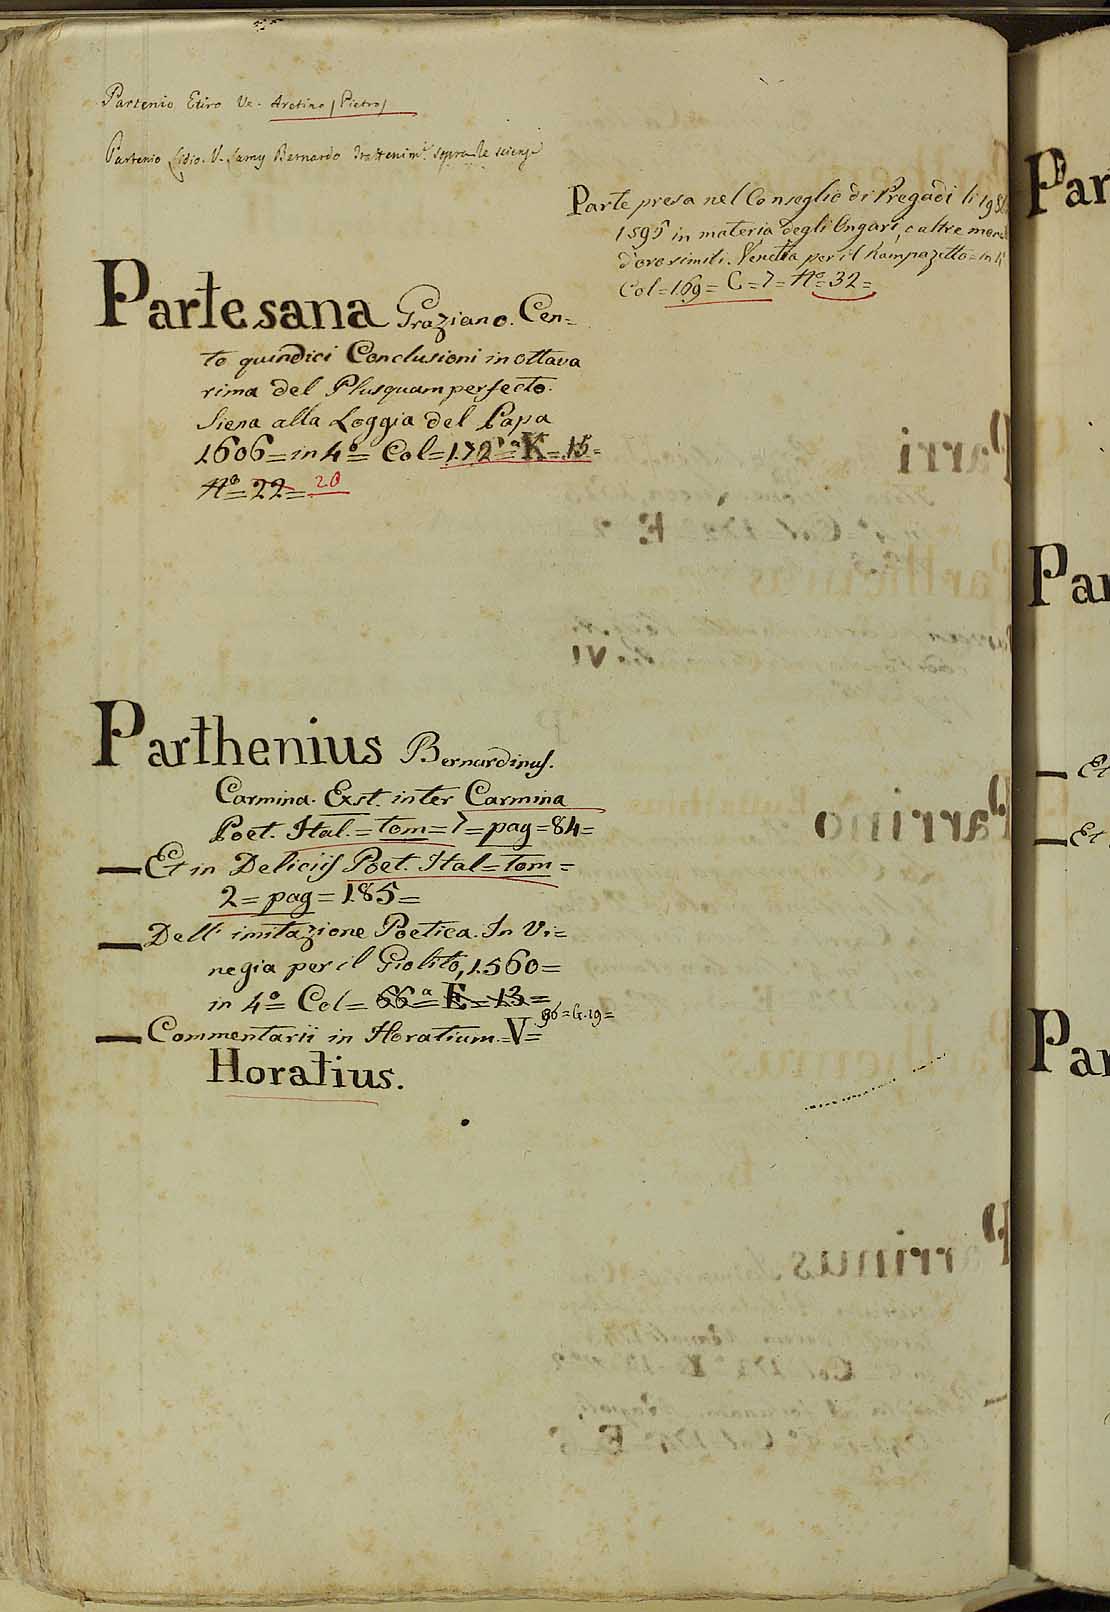 Partenio Etiro Ve. Aretino (Pietro)
Partenio Lidio. V. Lamy Bernardo Trattenim.ti sopra le scienze
Parte presa nel Conseglio di Pregadi li 19
1595 in materia degli Ongari, e altre mone
d'oro simili. Venetia per il Rampazetto = in 4°
Col = 169 = C = 7 = N° = 32 =
Partesana Graziano. Cen=
to quindici Conclusioni in ottava
rima del Plusquamperfecto.
Siena alla Loggia del Papa
1606 = in 4° = Col = 172 = K = 15 =
N° = 22 = 20
Parthenius Bernardinus.
Carmina. Exst. inter Carmina
Poet. Ital. = tom = 7 = pag = 84 =
— Et in Deliciis Poet. Ital = tom =
2 = pag = 185 =
— Dell' imitazione Poetica. In Vi=
negia per il Giolito, 1560 =
in 4° = Col = 66a = E = 13 =
96 = G. 19 =
— Commentarii in Horatium. V =
Horatius.
Par
Par
— Et
— Et
Par